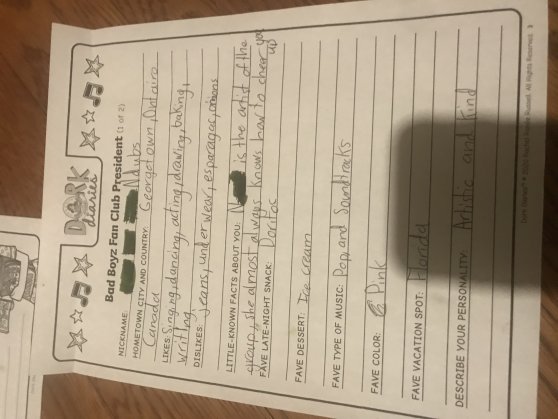 DORK
diaries
Bad Boyz Fan Club President (1 of 2)
NICKNAME: Ndubs
HOMETOWN CITY AND COUNTRY: Georgetown, Ontairo
Canada
LIKES: Singing, dancing, acting, drawing, baking,
writting
DISLIKES: Jeans, underwear, esparagas, onions
LITTLE-KNOWN FACTS ABOUT YOU: N is the artist of the
group, she almost always knows how to cheer you
up
FAVE LATE-NIGHT SNACK: Doritos
FAVE DESSERT: Ice cream
FAVE TYPE OF MUSIC: Pop, and Soundtracks
FAVE COLOR: Pink
FAVE VACATION SPOT: Florida
DESCRIBE YOUR PERSONALITY: Artistic and Kind
Dork Diaries™ © 2020 Rachel Renée Russell. All Rights Reserved. 3